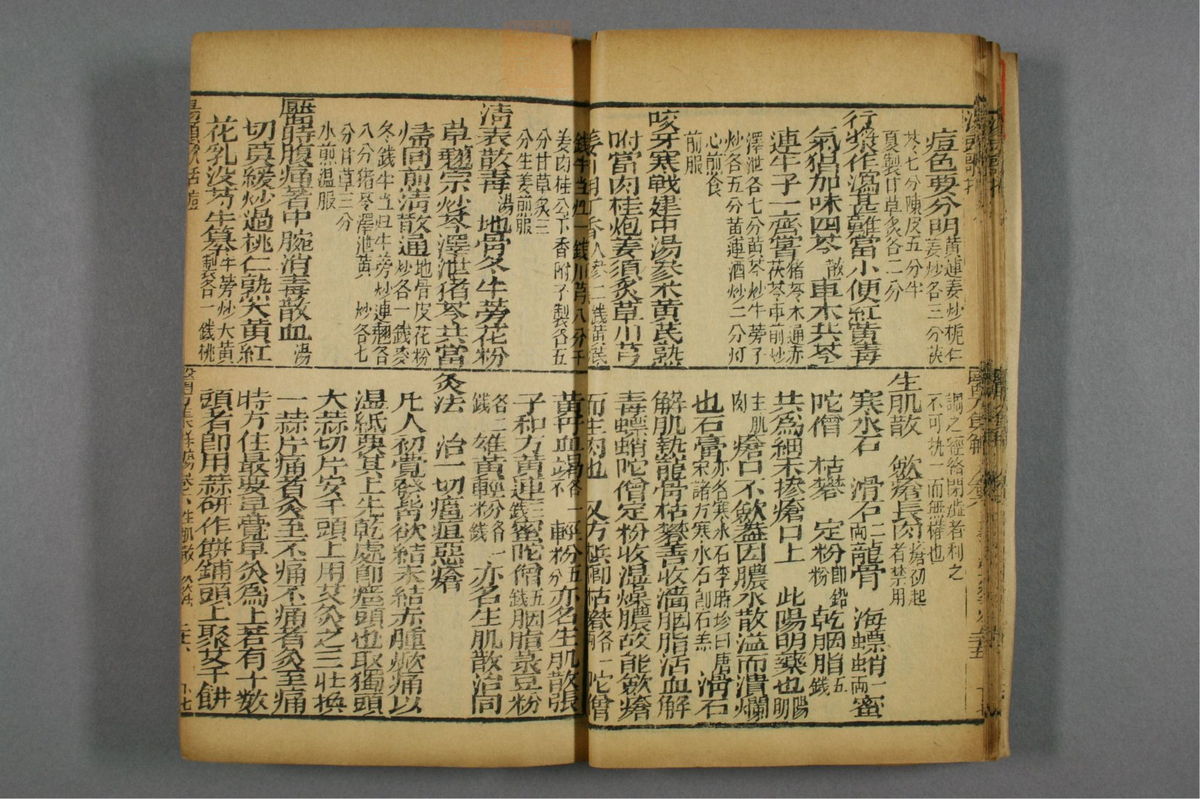 痘色要分明黃連姜炒梔仁
芩七分陳皮五分牛
夏製甘草炙各二分
行漿作瀉甚難當小便紅黃毒
氣猖加味四苓散車木共芩
連牛子一齊嘗猪苓木通赤茯苓車前炒
澤泄各七分黃芩炒牛蒡子
炒各五分黃連酒炒二分灯
心煎食
前服
咬牙寒戰建中湯參朮黃芪熟
附當肉桂炮姜須炙草川芎
錢牛當一錢川芎八分干
姜肉桂八分香附子製各五
分甘草炙三
分生姜煎服
清表散毒湯地骨冬牛蒡花粉
草翹宗炒芩澤泄猪苓共當
歸同煎清散通地骨皮花粉炒各一錢麥
冬錢牛當歸牛旁炒連翹各
八分猪苓澤泄黃芩炒各七
分甘草三分
水煎溫服
靨時腹痛著中脘消毒散血湯
切莫緩炒過桃仁熟大黃紅
花乳沒芩牛蒡牛旁炒大黃製各一錢桃
調之經絡閉澁者利之
不可執一而無權也
生肌散 斂瘡長肉瘡初起者禁用
寒水石 滑石二兩龍骨 海螵蛸一兩 蜜
陀僧 枯礬 定粉即鉛粉 乾胭脂五錢
共為細末摻瘡口上 此陽明藥也陽明
主肌肉瘡口不斂蓋因膿水散溢而潰爛
也石膏亦名寒水石李時珍曰唐宋諸方寒水石即石羔滑石
解肌熱龍骨枯礬善收濇胭脂活血解
毒螵蛸陀僧定粉收濕燥膿故能斂瘡
而生肉也 又方兵郎枯礬各一兩陀僧
黃丹血竭各一錢輕粉五分亦名生肌散張
子和方黃連三錢蜜陀僧五錢胭脂菉豆粉
各二錢雄黃輕粉各一錢亦名生肌散治同
灸法 治一切瘡疽惡瘡
凡人初覺發背欲結未結赤腫焮痛以
濕紙覆其上先乾處即瘡頭也取獨頭
大蒜切片安于頭上用艾灸之三壯換
一蒜片痛者灸至不痛不痛者灸至痛
時方住最要早覺早灸為上若有十數
頭者即用蒜研作餅鋪頭上聚艾于餅